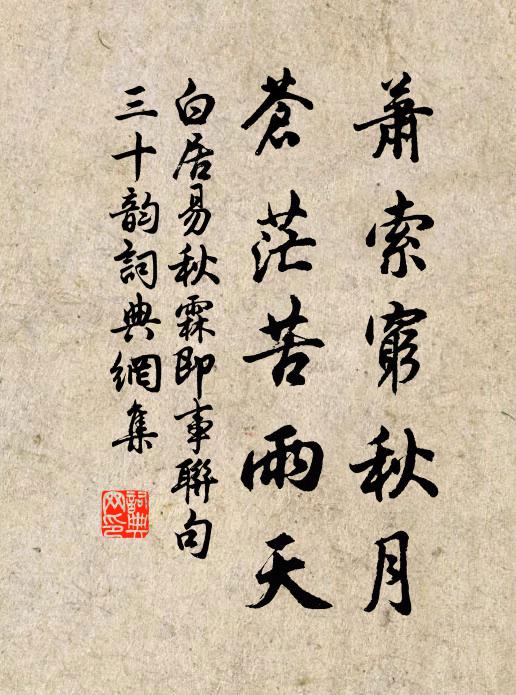 蕭索窮秋月
蒼茫苦雨天
白居易秋霖即事聯句
三十韵詞典網集
詞典
网印